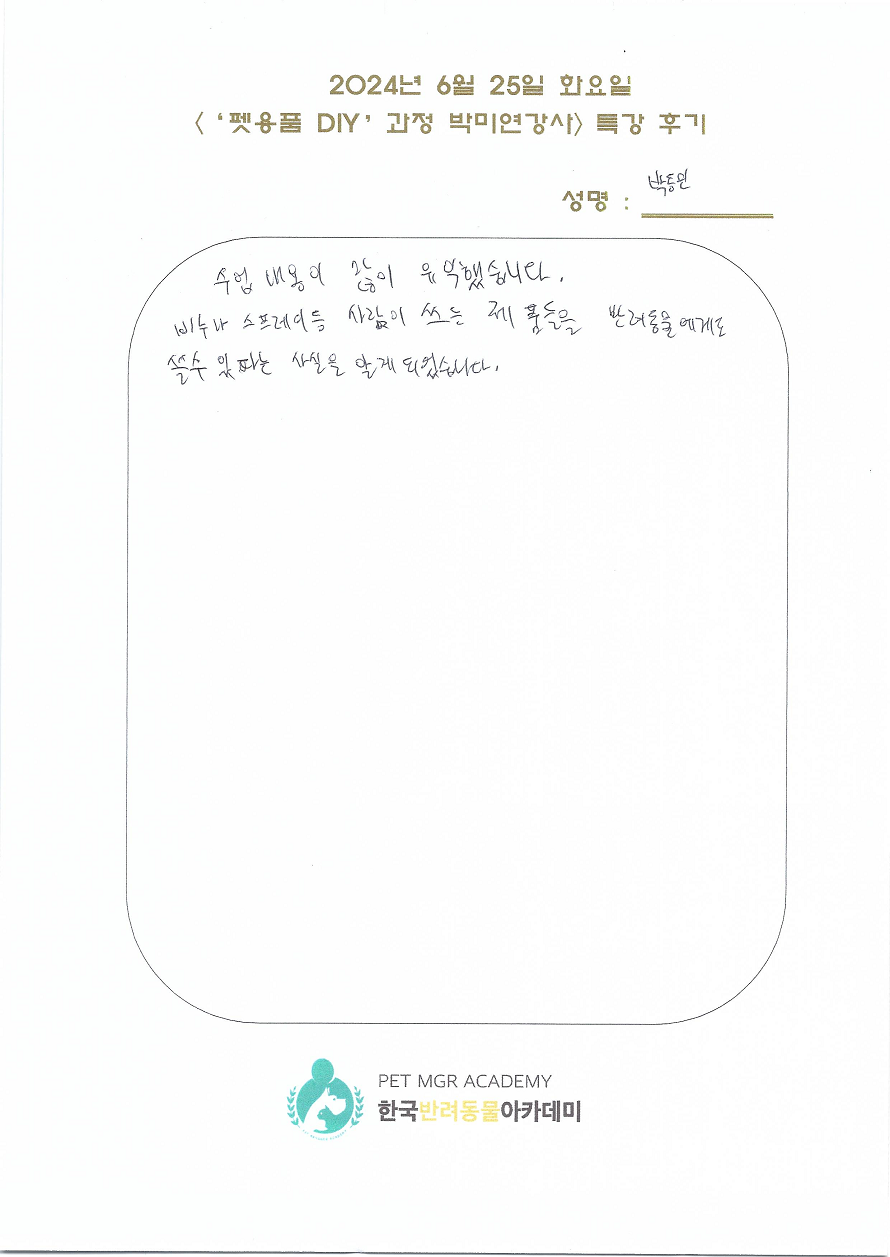 2024년 6월 25일 화요일
< '펫용품 DIY' 과정 박미연강사> 특강 후기
성명 : 박동원
수업 내용이 많이 유익했습니다.
비누나 스프레이등 사람이 쓰는 제품들을 반려동물에게도
쓸수 있다는 사실을 알게 되었습니다.
PET MGR ACADEMY
한국반려동물아카데미